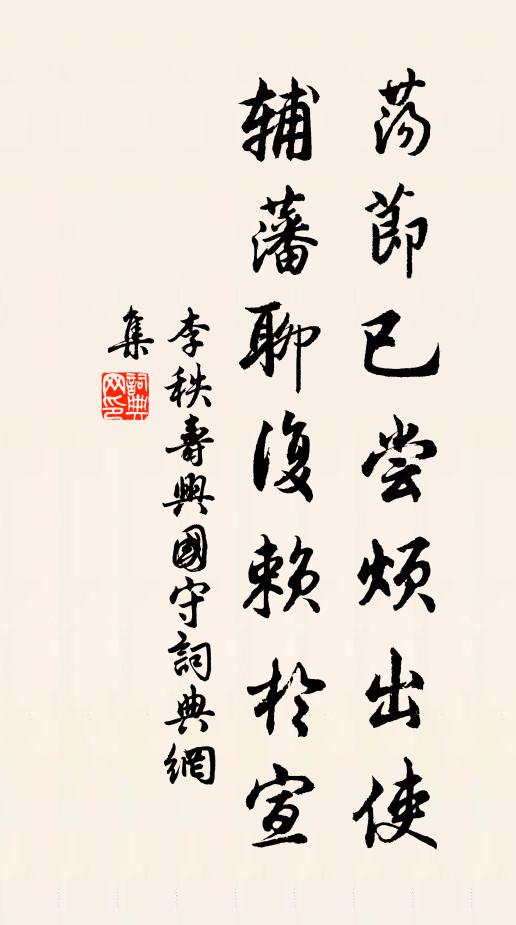 荡節已尝烦出使
辅藩聊復赖於宣
李秩壽興國守詞典網
集
詞典
网印